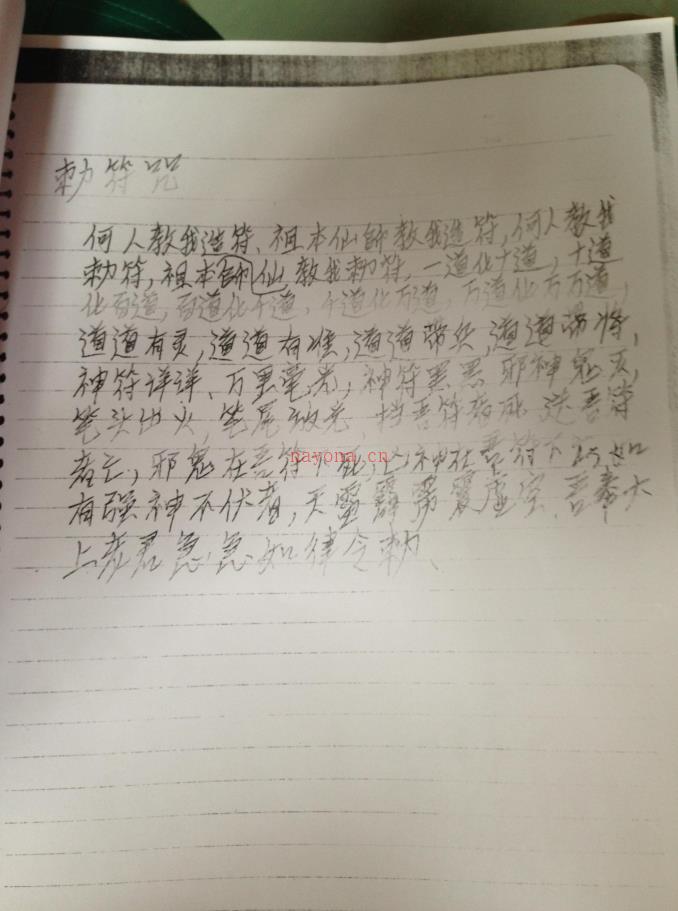 勅符咒
何人教我造符、祖本仙師教我造符,何人教我
勅符,祖本師仙教我勅符,一道化十道,十道
化百道,百道化千道,千道化万道,万道化万万道,
道道有灵,道道有准,道道带兵,道道带将,
神符洋洋、万里毫光,神符 邪神鬼灭,
笔头出火,笔尾放光 挡吾符者死 送吾符
者亡,邪鬼在吾符下死,凶神在吾符下 如
有强神不伏者,天 霹雳震虚空、吾奉太
上老君急急如律令勅、
nayona.cn